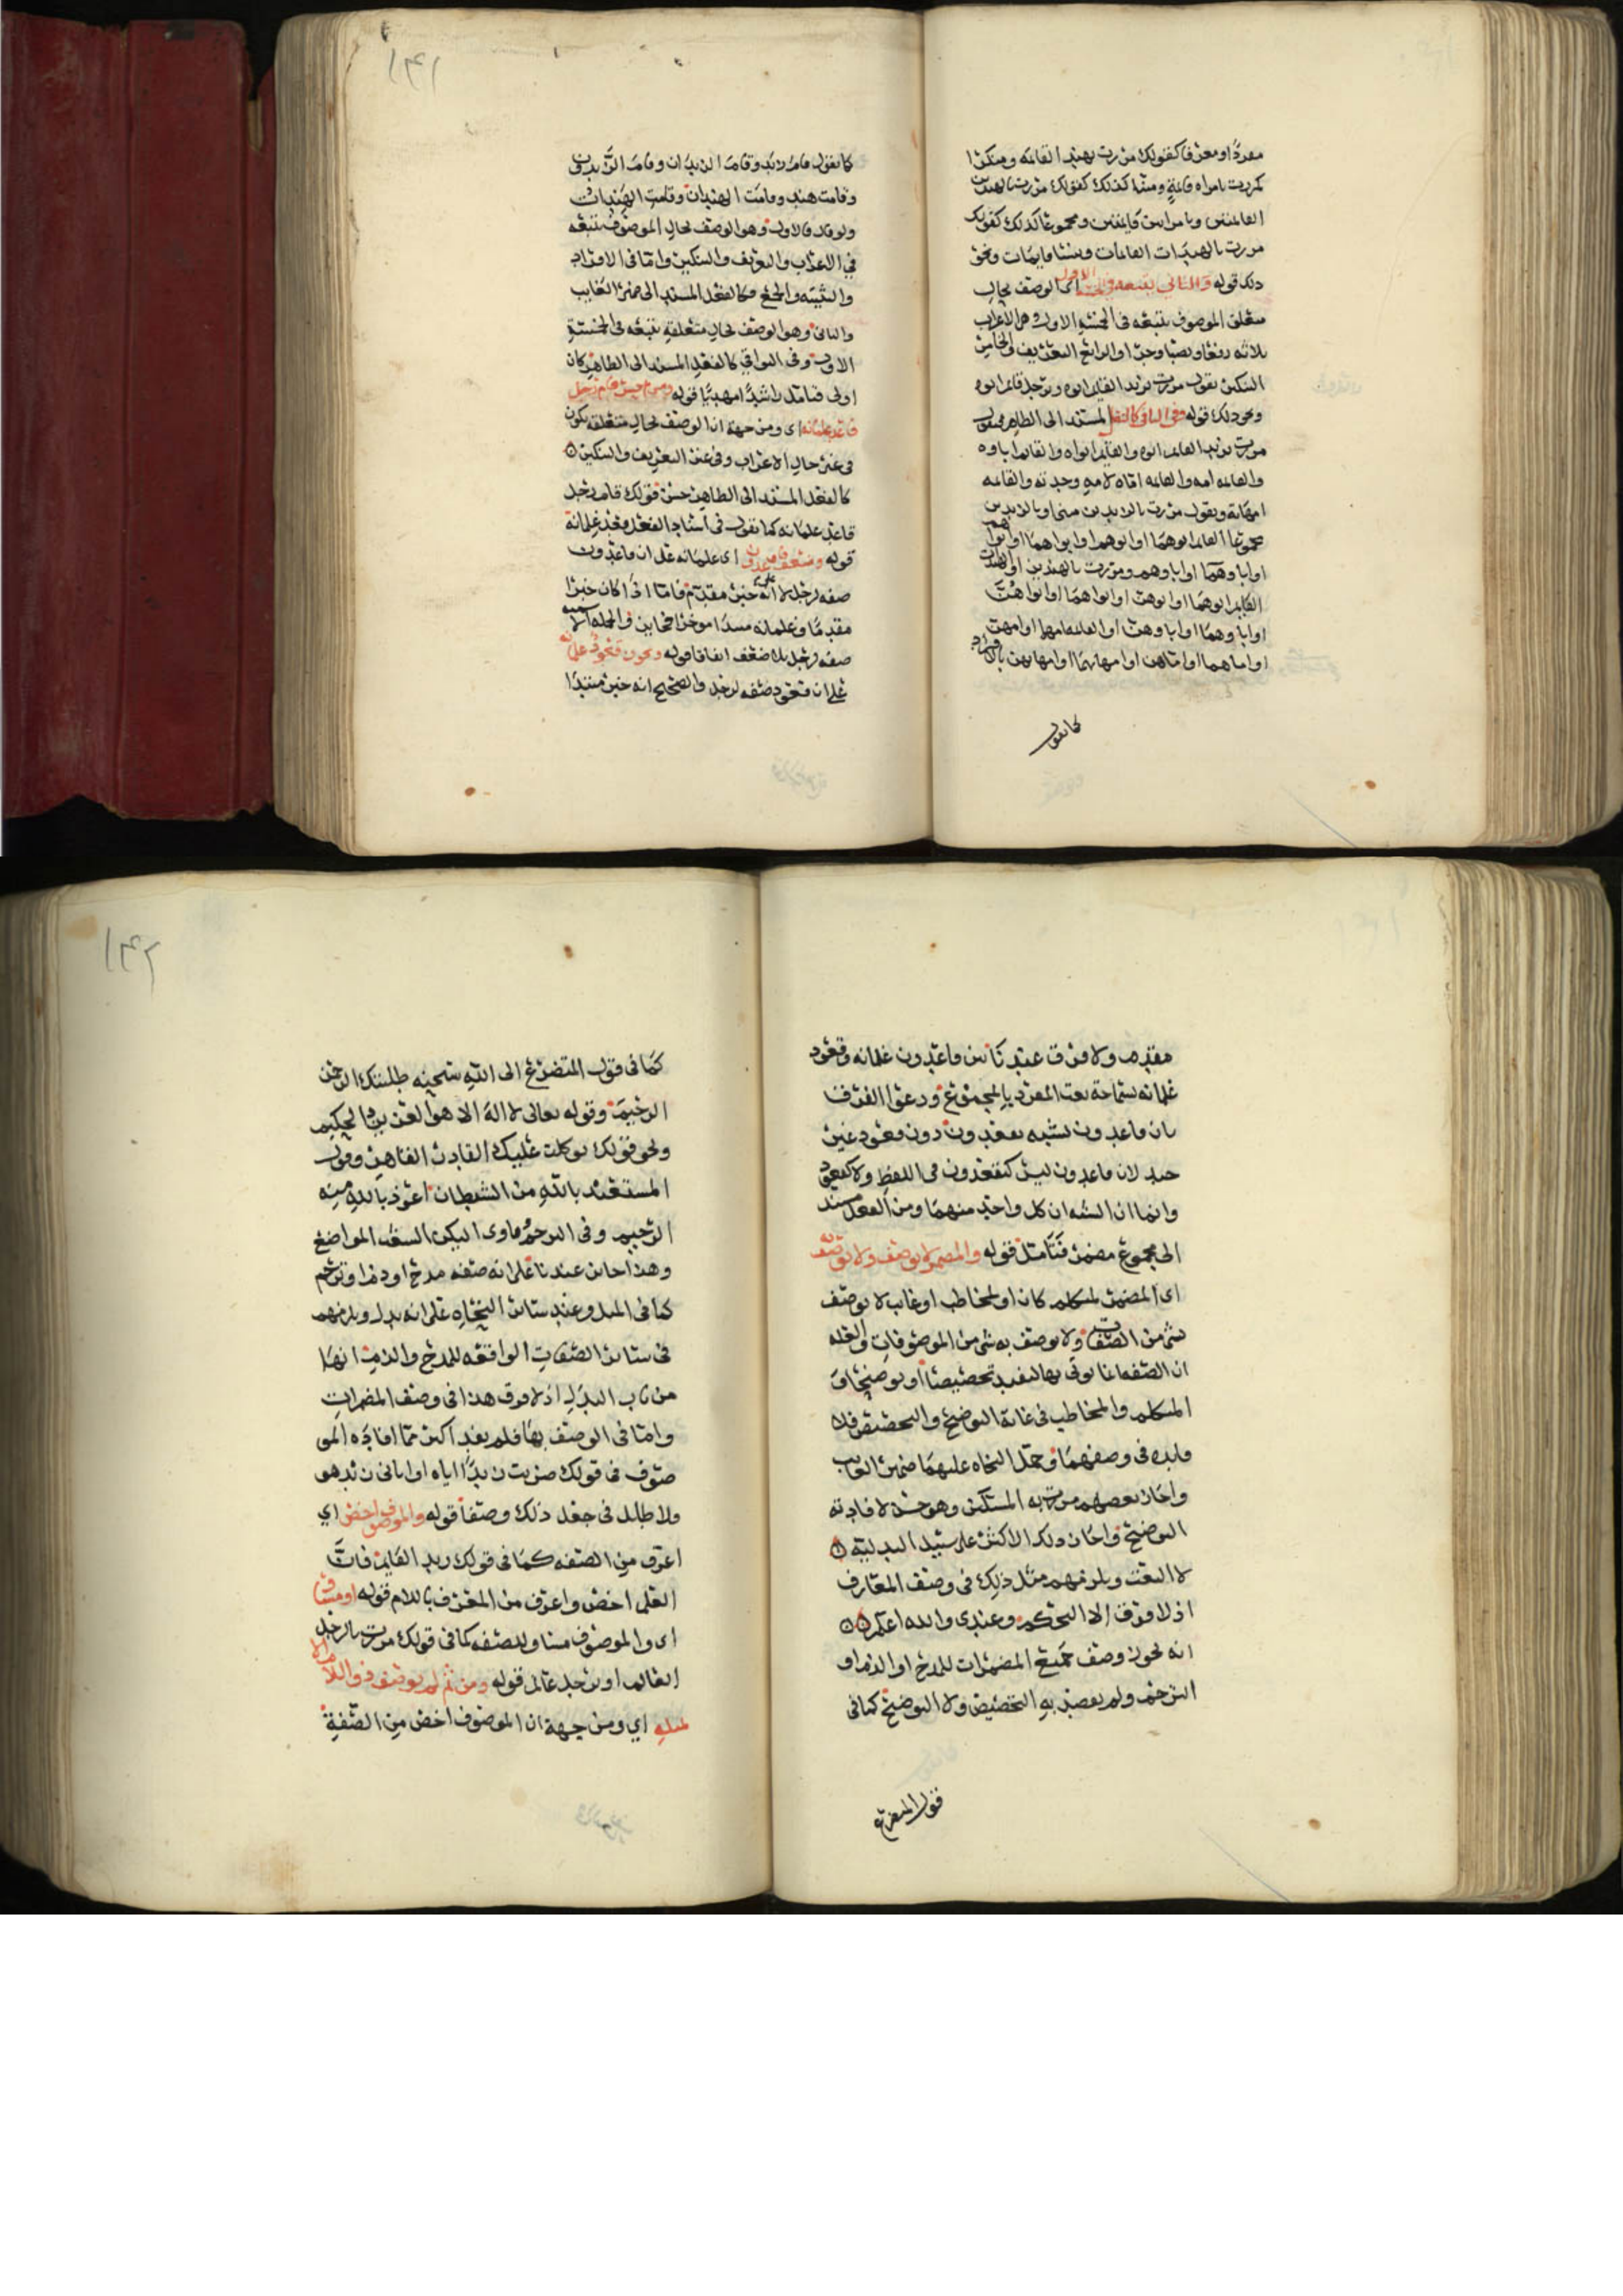 مفردًا ومعرفا كقولك مررت بهند القائمه ومنكرا
كمررت بامراه قائمةٍ ومثنا كذلك كقولك مررت بالهندين
القائمتين وبامراتين قايمتين ومجموعًا كذلك كقولك
مررت بالهندات القائمات وبنسا قايمات ونحو
ذلك قوله والثاني يتبعه في الخمسة الاول اى الوصف بحال
متعلق الموصوف يتبعه فى الخمسة الاول وهى الاعراب
ثلاثه رفعًا ونصبًا وجرًا والرابع التعريف والخامس
التنكير تقول مررت بزيد القايم ابوه وبرجل قايم ابوه
ونحو ذلك قوله وفى البواقى كالفعل المسند الى الظاهر فتقول
مررت بزيد القايم ابوه والقايم ابواه والقايم اباوه
والقايمه امه والقايمه اماه لامه وجدته والقايمه
امهاته وتقول مررت بالزيدين مثنى او بالزيدين
مجموعًا القايم ابوهما او ابوهم او ابواهما او ابواهم
او اباوهما او اباوهم ومررت بالهندين او الهندات
القايم ابوهما او ابوهن او ابواهما او ابواهن
او اباوهما او اباوهن او القايمه امهما او امهن
او اماهما او اماهن او امهاتهما او امهاتهن بالافراد
كما تقول
١٣١
كما تقول قام زيد وقام الزيدان وقام الزيدون
وقامت هند وقامت الهندان وقامت الهندات
ولو قال فالاول وهو الوصف بحال الموصوف يتبعه
في الاعراب والتعريف والتنكير واما فى الافراد
والتثنيه والجمع فكالفعل المسند الى ضمير الغايب
والثاني وهو الوصف بحال متعلقه يتبعه فى الخمسة
الاول وفى البواقي كالفعل المسند الى الظاهر كان
اولى فتامل راشدًا مهديًا قوله ومن ثم حسن قام رجل
قاعد غلمانه اى ومن جهة ان الوصف بحال متعلقه يكون
فى غير حال الاعراب وفى غير التعريف والتنكير
كالفعل المسند الى الظاهر حسن قولك قام رجل
قاعد غلمانه كما تقول فى اسناد الفعل يقعد غلمانه
قوله وضعف قاعدون اى غلمانه على ان قاعدون
صفه لرجل لا انه خبر مقدم فاما اذا كان خبرا
مقدمًا وغلمانه مبتدا موخرا فجايز والجمله اسميه
صفه لرجل بلا ضعف اتفاقا قوله ويجوز قعود غلمانه
على ان قعود صفه لرجل والصحيح انه خبر مبتدا
مقدم ولا فرق عندنا بين قاعدون غلمانه وقعود
غلمانه لسماحة نعت المفرد بالمجموع ودعوا الفرق
بان قاعدون يشبه يقعدون دون قعود غير
جيد لان قاعدون ليس كيقعدون فى اللفظ ولا كقعود
وانما ان الشبه ان كل واحد منهما ومن الفعل مسند
الى مجموع مضمر فتامل قوله والمضمر لا يوصف ولا يوصف به
اى المضمر لمتكلم كان او لمخاطب او غايب لا يوصف
بشى من الصفات ولا يوصف به شى من الموصوفات والعله
ان الصفه انما يوتى بها لتفيد تخصيصًا او توضيحًا و
المتكلم والمخاطب فى غاية التوضيح والتخصيص فلا
فايده فى وصفهما وحمل النحاه عليهما ضمير الغايب
واجاز بعضهم مررت به المسكين وهو حسن لافادته
التوضيح واجاز ذلك الاكثر على سبيل البدليه
لا النعت ويلزمهم مثل ذلك فى وصف المعارف
اذ لا فرق الا التحكم وعندى والله اعلم
انه يجوز وصف جميع المضمرات للمدح او الذم او
الترحم ولم يقصد به التخصيص ولا التوضيح كما فى
قول المتضرع
١٣٢
كما فى قول المتضرع الى الله سبحنه طلبتك الرحمن
الرحيم وقوله تعالى لا اله الا هو العزيز الحكيم
ونحو قولك توكلت عليك القادر القاهر وقول
المستعيذ بالله من الشيطان اعوذ بالله منه
الرجيم وفى الترحم
وهذا جايز عندنا على انه صفه مدح او ذم او ترحم
كما فى المثل وعند ساير النحاه على انه بدل ويلزمهم
فى ساير الصفات الواقعه للمدح والذم انها
من باب البدل اذ لا فرق هذا فى وصف المضمرات
واما فى الوصف بها فلم يفد اكثر مما افاده المو
صوف فى قولك ضربت زيدًا اياه او اتانى زيد هو
ولا طايل فى جعل ذلك وصفا قوله والموصوف اخص اي
اعرف من الصفه كما فى قولك زيد القايم فان
العلم اخص واعرف من المعرف باللام قوله او مساو
اى والموصوف مساو للصفه كما فى قولك مررت بالرجل
العالم او برجل عالم قوله ومن ثم لم يوصف ذو اللام الا
بمثله اي ومن جهة ان الموصوف اخص من الصفة